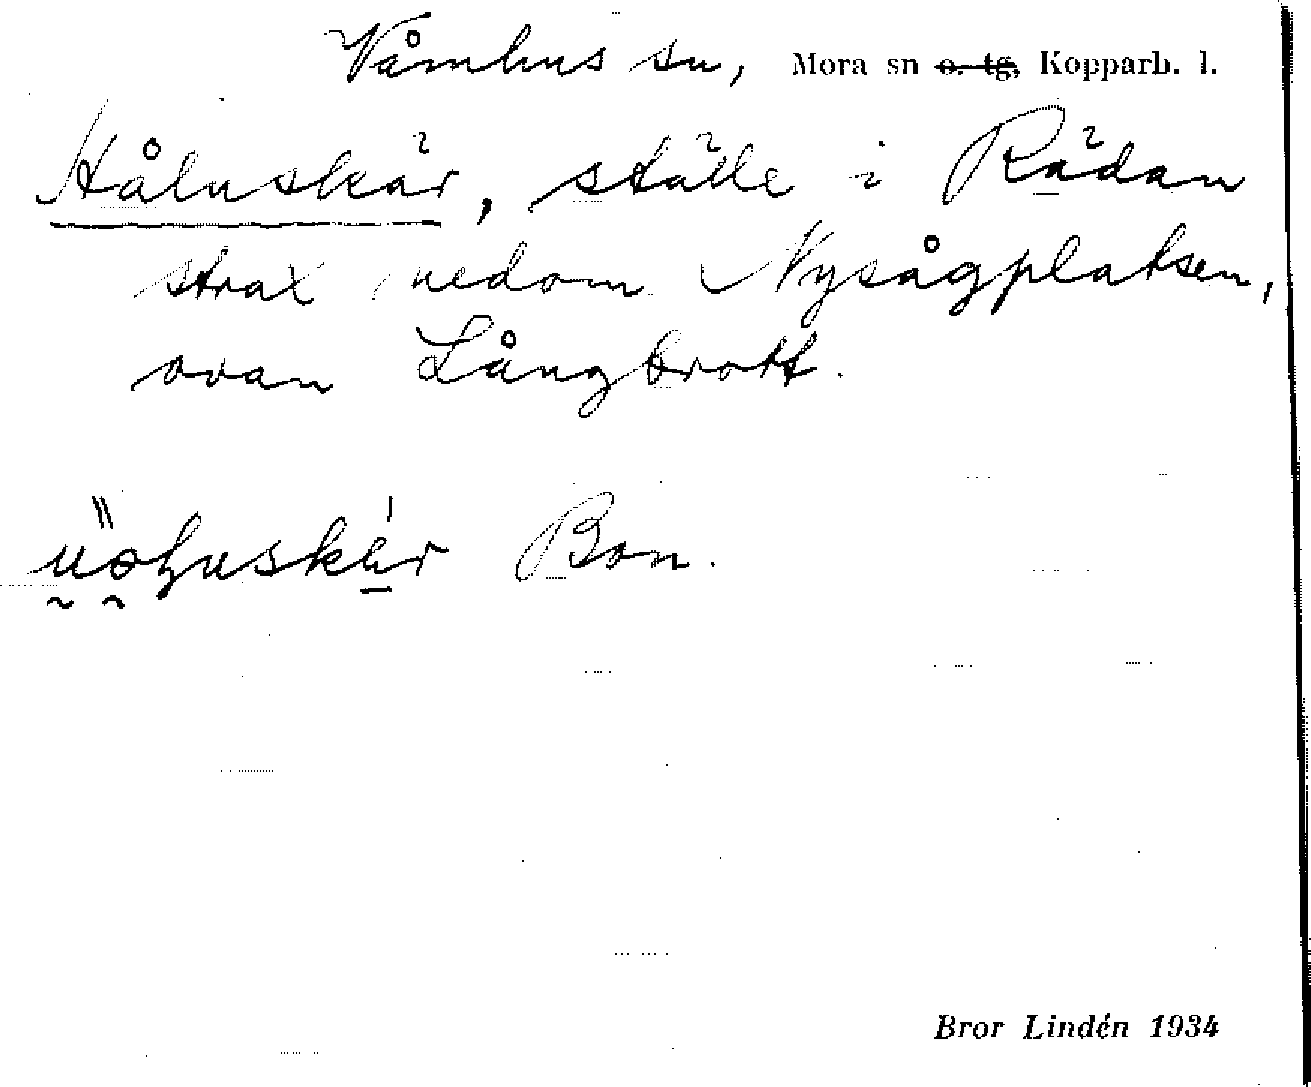 Våmhus sn, Mora sn o. tg, Kopparb. l.
Hålnskär, ställe i Rädan
strax nedom Nysågplatsen,
ovan Långbrott.
Bon.
Bror Lindén 1934